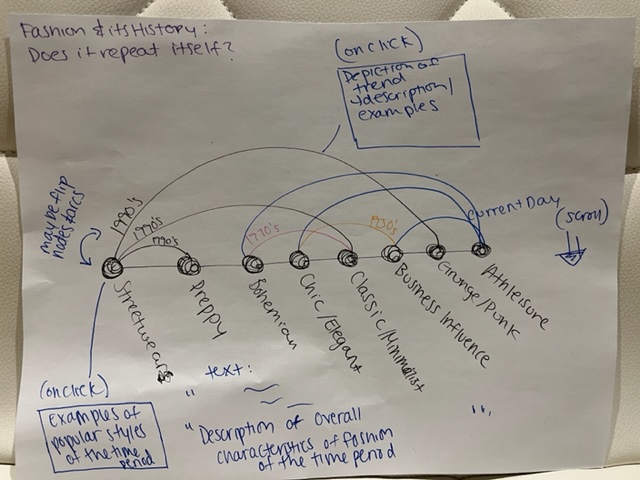 Fashion & its History:
Does it repeat itself?
(onclick)
Depiction of
trend
+description/
examples
maybe flip
nodes + arcs
1990's
1970's
1990's
1970's
1950's
Current Day
(scroll)
Streetwear
Preppy
Bohemian
Chic/Elegant
Classic/Minimalist
Business Influence
Grunge/Punk
Athleisure
(onclick)
Examples of
popular styles
of the time
period
text:
"Description of overall
characteristics of fashion
of the time period
"